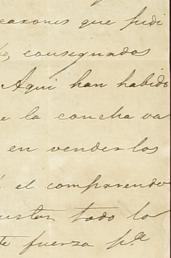 razones que pidi
consignados
Aqui han habido
e la concha va
en venderlos
el comprendo
gusten todo lo
te fuerza pª